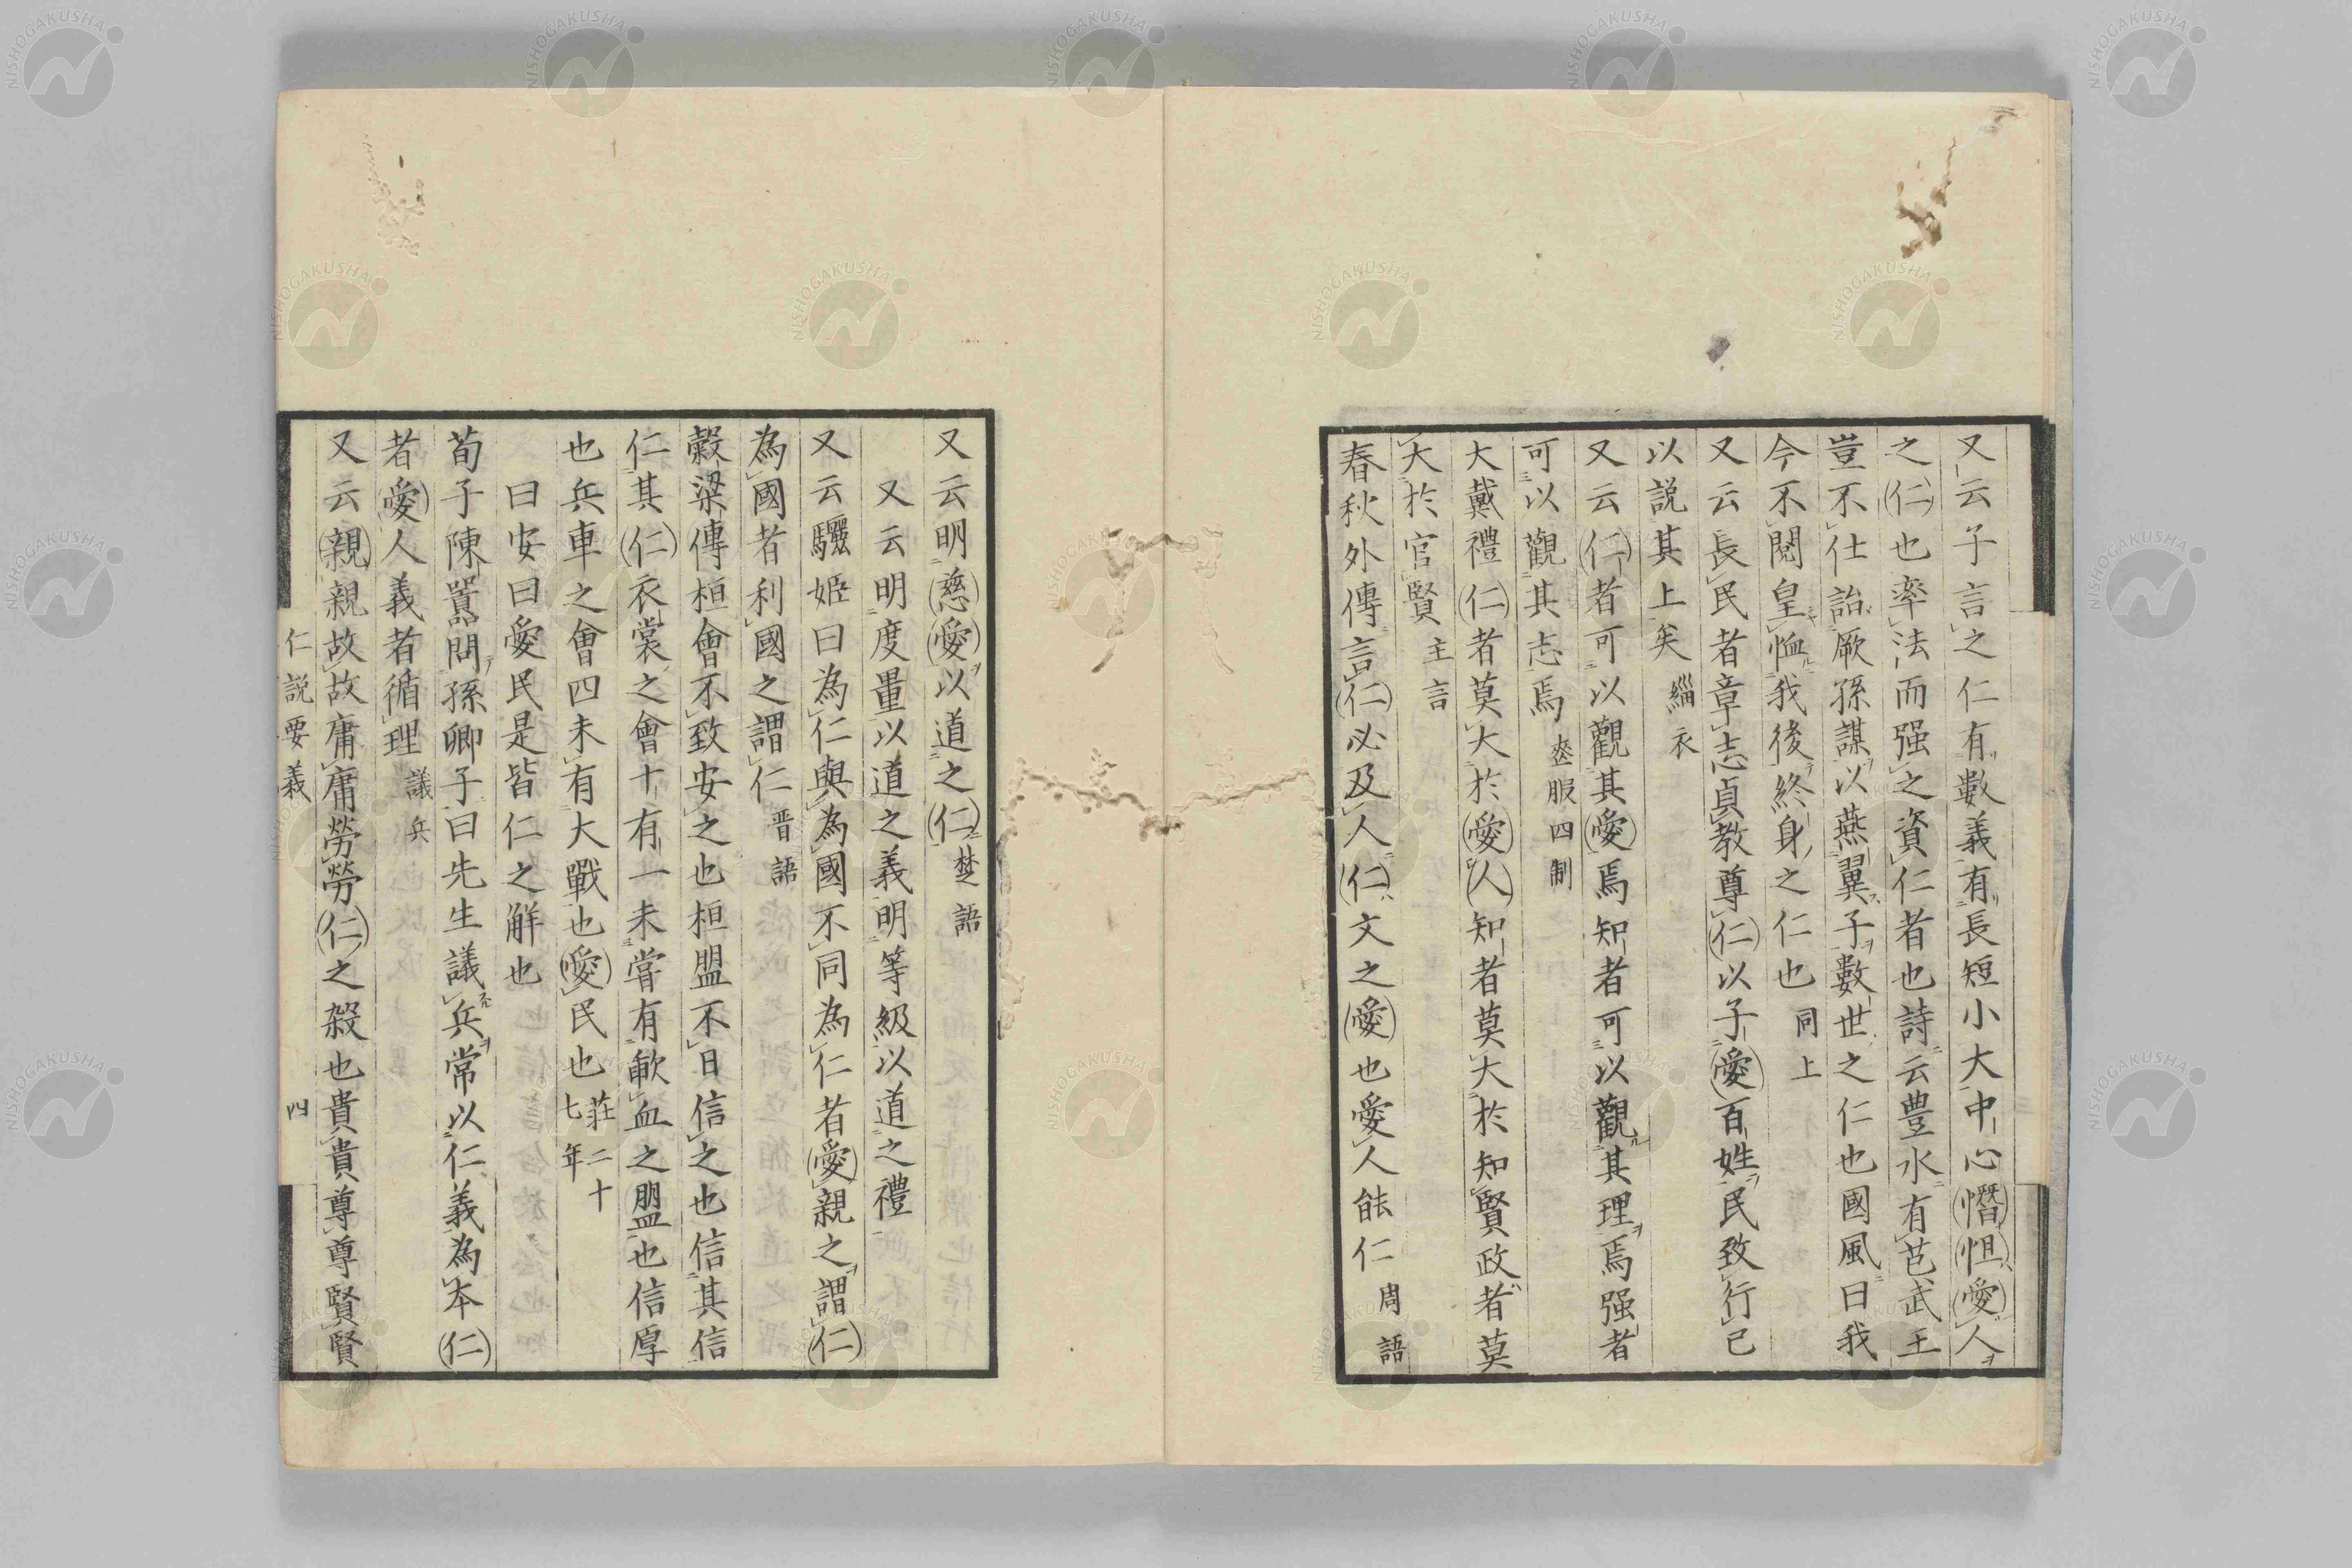 又云子言之仁有數義有長短小大中心憯怛愛人
之仁也率法而强之資仁者也詩云豊水有芑武王
豈不仕詒厥孫謀以燕翼子數世之仁也國風曰我
今不閱皇恤我後終身之仁也同上
又云長民者章志貞教尊仁以子愛百姓民致行己
以説其上矣緇衣
又云仁者可以觀其愛焉知者可以觀其理焉强者
可以觀其志焉喪服四制
大戴禮仁者莫大於愛人知者莫大於知賢政者莫
大於官賢主言
春秋外傳言仁必及人仁文之愛也愛人能仁周語
又云明慈愛以道之仁楚語
又云明度量以道之義明等級以道之禮
又云驪姬曰為仁與為國不同為仁者愛親之謂仁
為國者利國之謂仁晋語
穀梁傳桓會不致安之也桓盟不日信之也信其信
仁其仁衣裳之會十有一未嘗有歃血之盟也信厚
也兵車之會四未有大戰也愛民也莊二十七年
曰安曰愛民是皆仁之解也
荀子陳嚣問孫卿子曰先生議兵常以仁義為本仁
者愛人義者循理議兵
又云親親故故庸庸勞勞仁之殺也貴貴尊尊賢賢
仁説要義
四
NISHOGAKUSHA